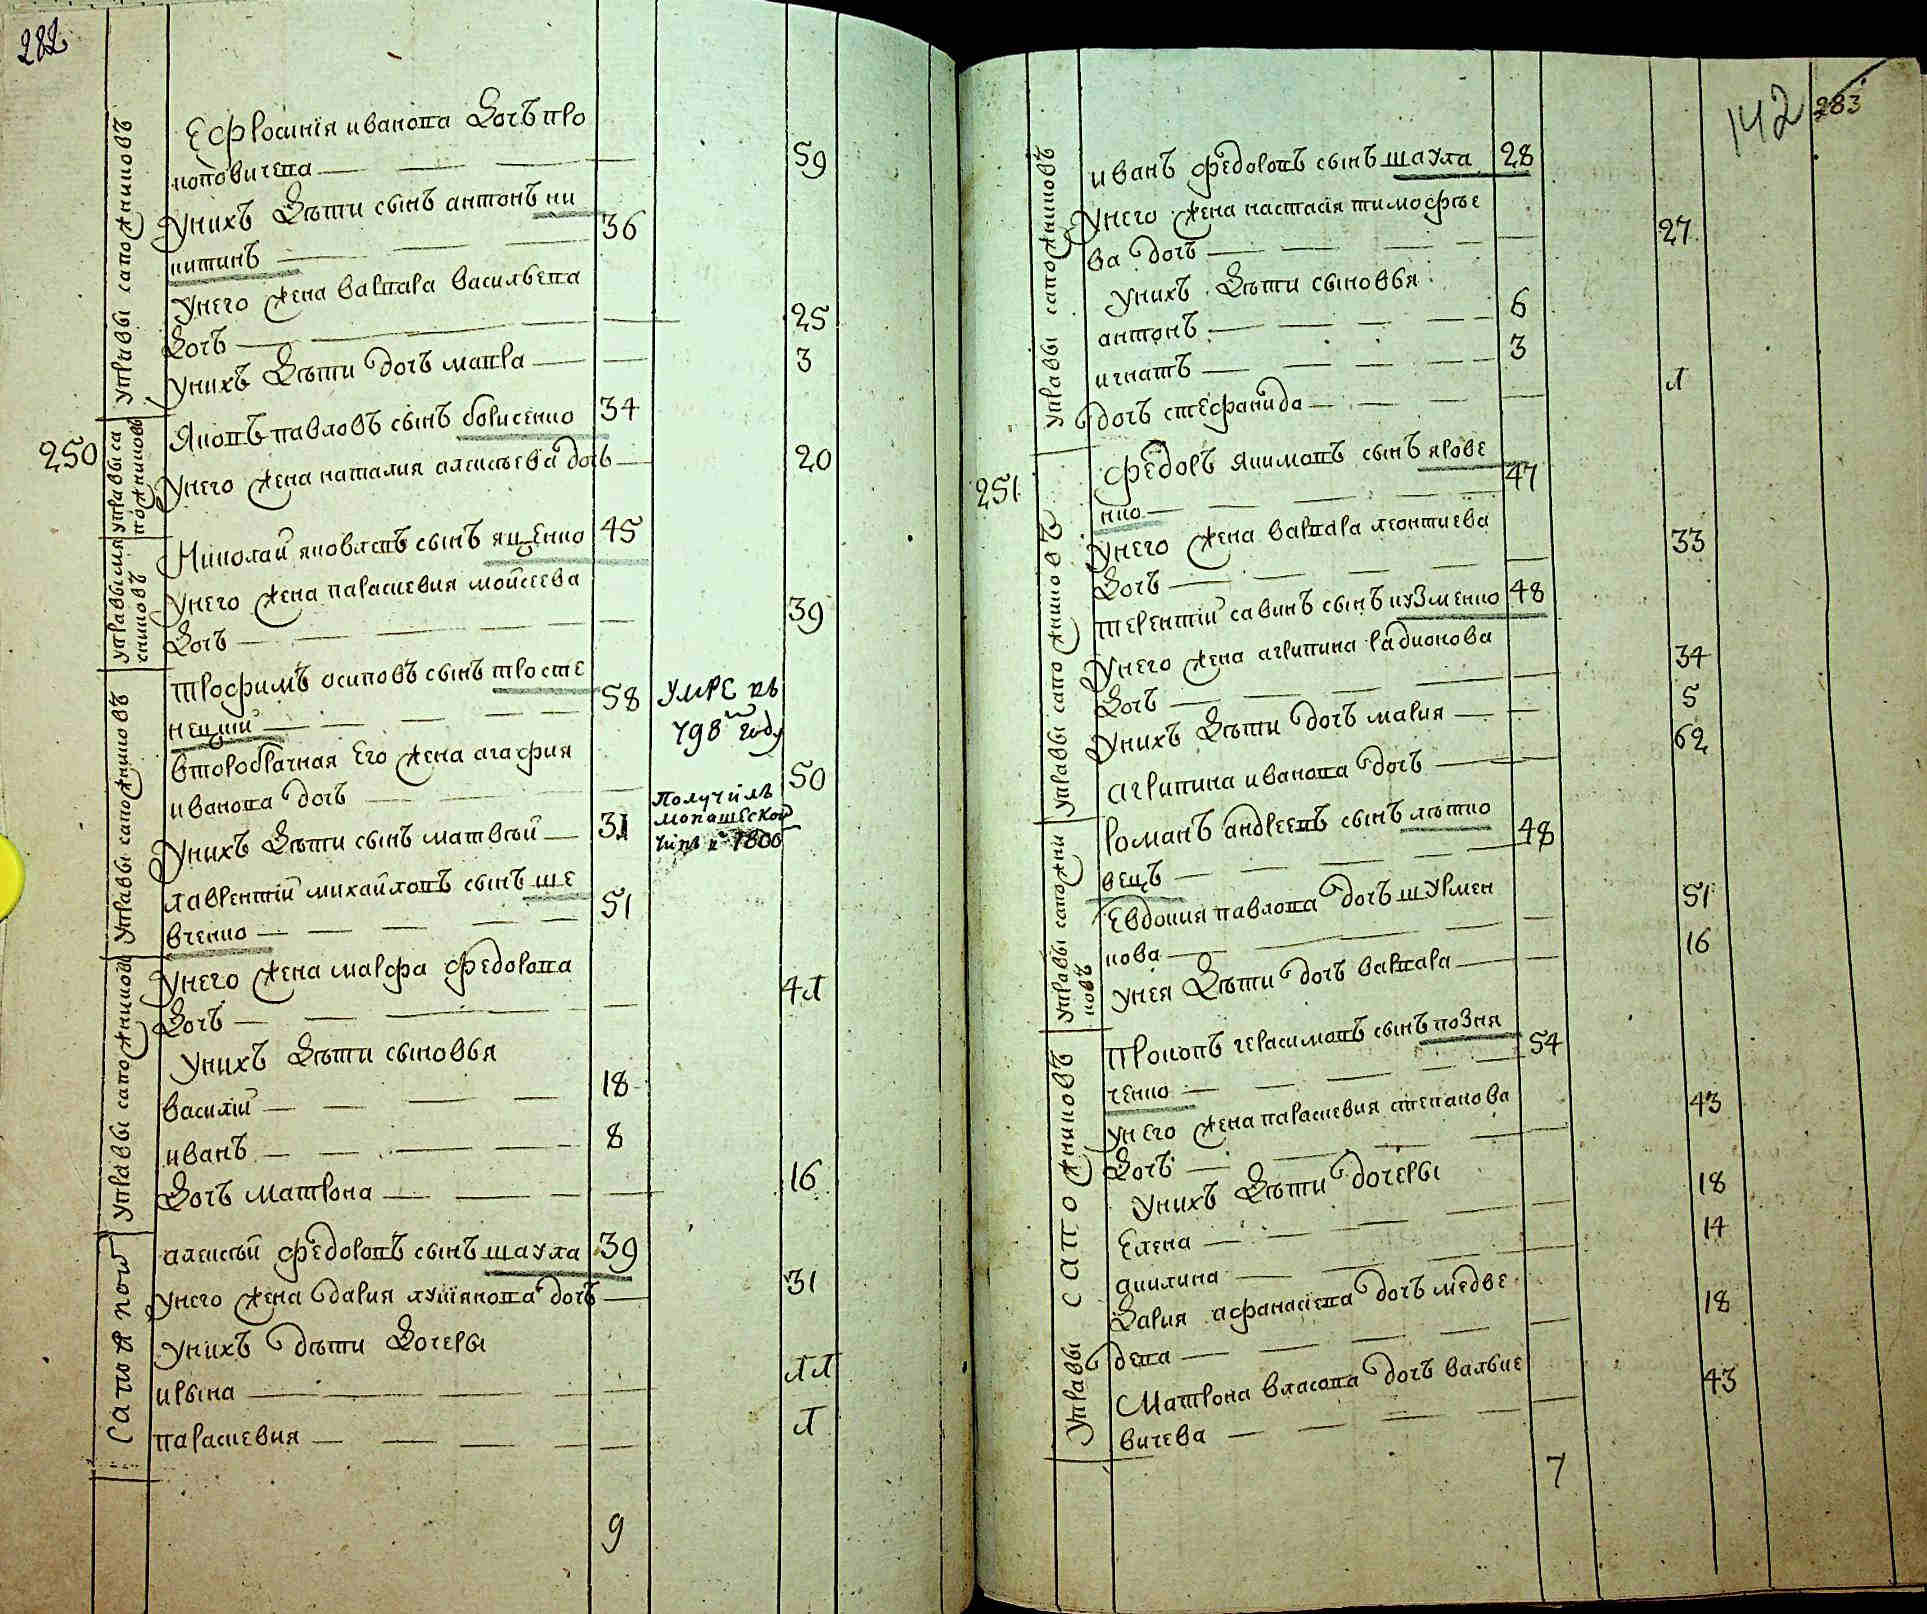 282
управы сапожников
Ефросинія иванова дочъ про
коповичева 59
У нихъ дѣти сынъ антонъ ни
китинъ 36
У него жена варвара васильева
дочъ 25
У нихъ дѣти дочъ мавра 3
250
управы сапожников
Яковъ павловъ сынъ борисенко 34
У него жена наталия алексѣева дочь 20
управы мясниковъ
Николай яковлевъ сынъ яценко 45
У него жена параскевия моисеева
дочъ 39
управы сапожниковъ
трофимъ осиповъ сынъ тросте
нецкий 58
умре въ
798м году
второбрачная его жена агафия
иванова дочъ 50
У нихъ дѣти сынъ матвѣй 31
Получилъ
монашеской
чинъ в 1800
лаврентій михайловъ сынъ ше
вченко 51
управы сапожников
У него жена марфа федорова
дочъ 41
У нихъ дѣти сыновья
василій 18
иванъ 8
дочъ матрона 16
сапожников
алексѣй федоровъ сынъ шаула 39
У него жена дария лукіянова дочъ 31
У нихъ дѣти дочеры
ирына 11
параскевия 1
9
142 283
управы сапожниковъ
иванъ федоровъ сынъ шаула 28
У него жена настасія тимофѣе
ва дочъ 27
У нихъ дѣти сыновья
антонъ 6
игнатъ 3
дочъ стефанида 1
251
управы сапожниковъ
федоръ якимовъ сынъ ярове
нко 47
У него жена варвара леонтиева
дочъ 33
терентій савинъ сынъ кузменко 48
У него жена агрипина радионова
дочъ 34
У нихъ дѣти дочъ мария 5
агрипина иванова дочъ 62
управы сапожни
ковъ
романъ андреевъ сынъ литко
вецъ 48
Евдокия павлова дочъ шурмен
кова 51
У нея дѣти дочъ варвара 16
управы сапожниковъ
Прокопъ герасимовъ сынъ позня
ченко 54
У него жена параскевия степанова
дочъ 43
У нихъ дѣти дочеры
Елена 18
акилина 14
Дария афанасіева дочъ медве
дева 18
Матрона власова дочъ валвие
вичева 43
7